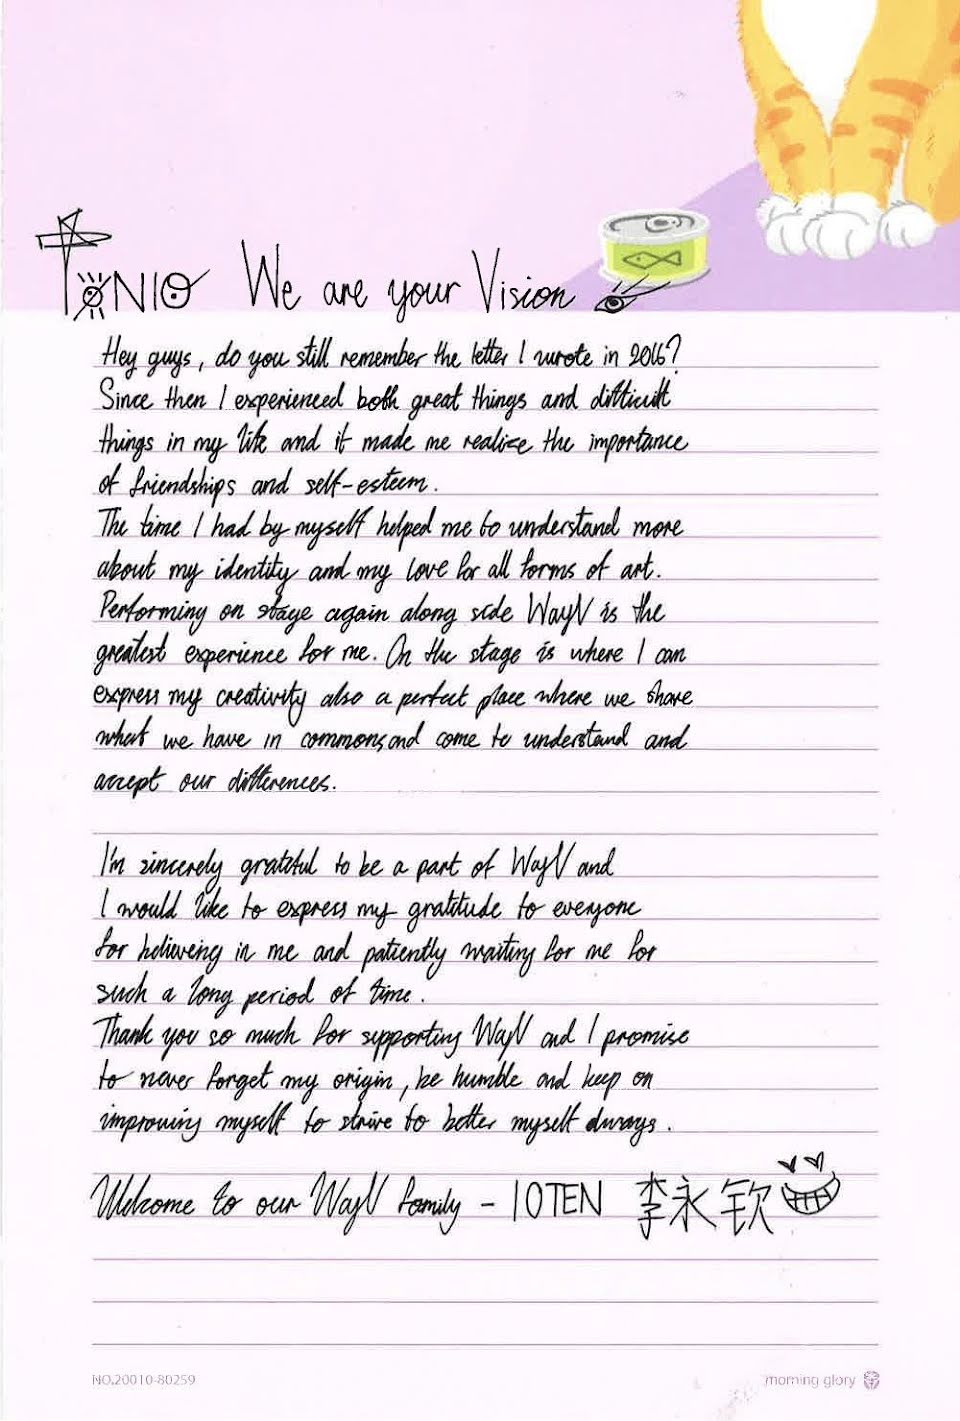 TENIO We are your Vision
Hey guys, do you still remember the letter I wrote in 2016?
Since then I experienced both great things and difficult
things in my life and it made me realize the importance
of friendships and self-esteem.
The time I had by myself helped me to understand more
about my identity and my love for all forms of art.
Performing on stage again along side WayV is the
greatest experience for me. On the stage is where I can
express my creativity also a perfect place where we share
what we have in commons and come to understand and
accept our differences.
I'm sincerely grateful to be a part of WayV and
I would like to express my gratitude to everyone
for believeing in me and patiently waiting for me for
such a long period of time.
Thank you so much for supporting WayV and I promise
to never forget my origin, be humble and keep on
improving myself to strive to better myself always.
Welcome to our WayV family - 10TEN 李永钦
NO.20010-80259
morning glory